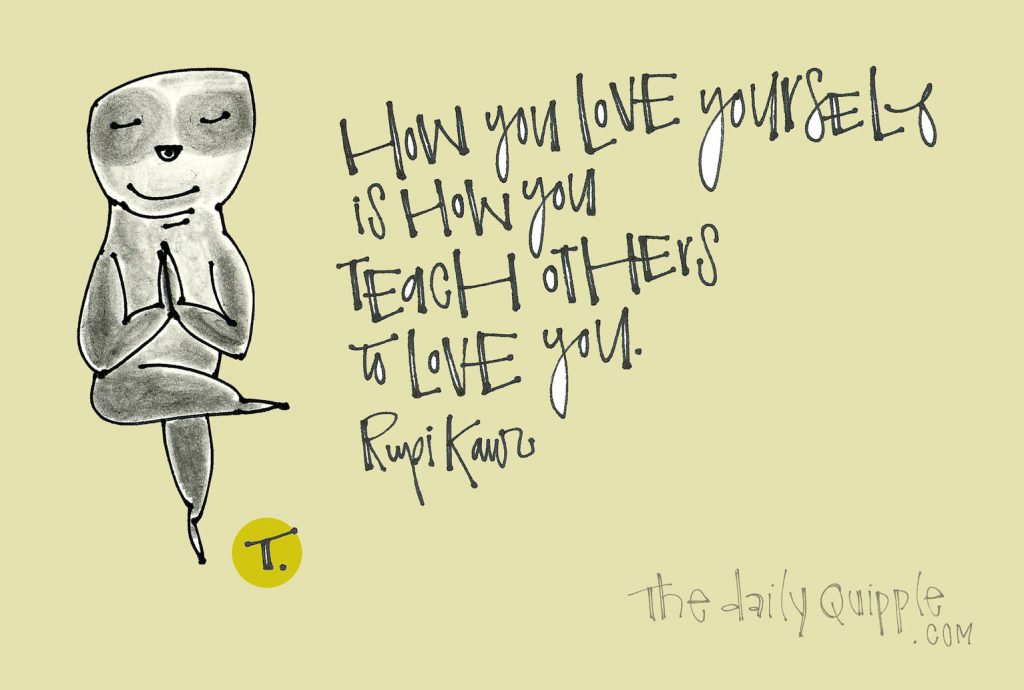 How you Love yourself
is How you
Teach others
to Love you.
Rupi Kaur
T.
The daily Quipple
.com